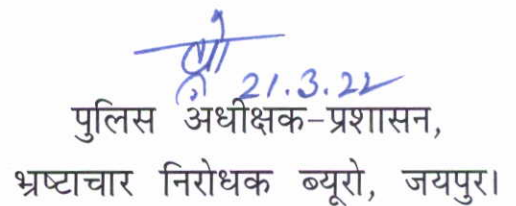 21.3.22
पुलिस अधीक्षक-प्रशासन,
भ्रष्टाचार निरोधक ब्यूरो, जयपुर।